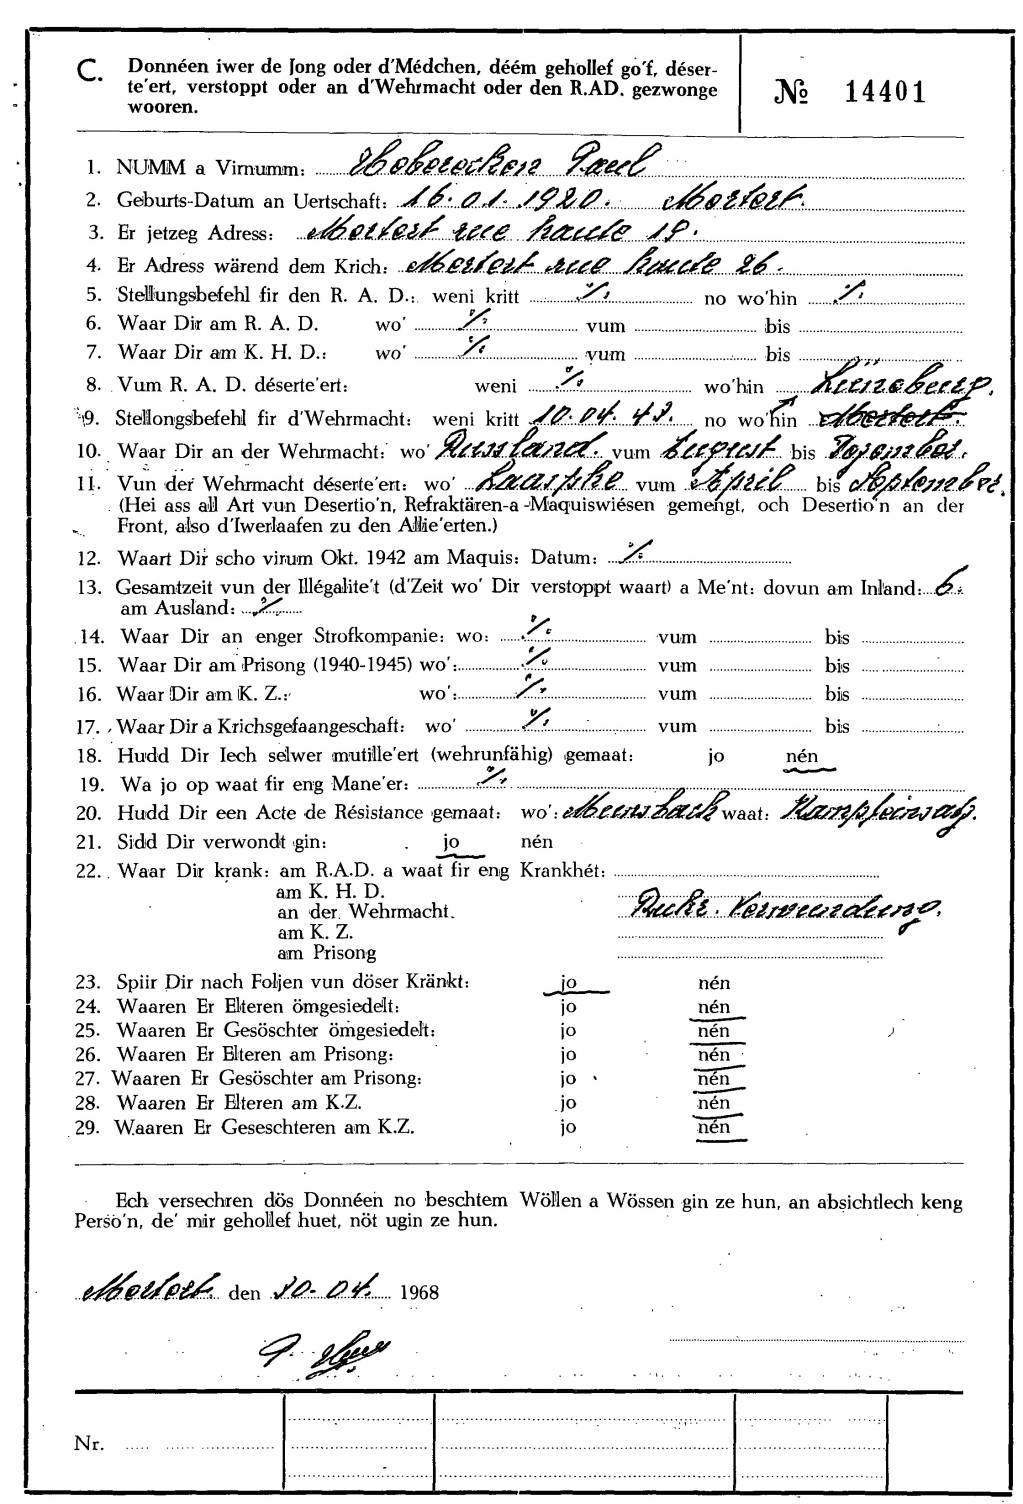 C. Donnéen iwer de Jong oder d'Médchen, déém gehollef go'f, déser-
te'ert, verstoppt oder an d'Wehrmacht oder den R.AD. gezwonge
wooren.
№ 14401
1. NUMM a Virnumm: Hoberecken Paul
2. Geburts-Datum an Uertschaft: 16.01.1920. Mertert.
3. Er jetzeg Adress: Mertert rue haute 19.
4. Er Adress wärend dem Krich: Mertert rue haute 26.
5. Stellungsbefehl fir den R. A. D.: weni kritt ./. no wo'hin ./.
6. Waar Dir am R. A. D. wo' ./. vum bis
7. Waar Dir am K. H. D.: wo' ./. vum bis
8. Vum R. A. D. déserte'ert: weni ./. wo'hin Lüneburg.
9. Stellongsbefehl fir d'Wehrmacht: weni kritt 10.04.43. no wo'hin Mertert.
10. Waar Dir an der Wehrmacht: wo' Russland. vum August bis Dezember.
11. Vun der Wehrmacht déserte'ert: wo' Laasphe vum April bis September.
(Hei ass all Art vun Desertio'n, Refraktären-a-Maquiswiésen gemengt, och Desertio'n an der
Front, also d'Iwerlaafen zu den Allie'erten.)
12. Waart Dir scho virum Okt. 1942 am Maquis: Datum: ./.
13. Gesamtzeit vun der Illégalite't (d'Zeit wo' Dir verstoppt waart) a Me'nt: dovun am Inland: 6.
am Ausland: ./.
14. Waar Dir an enger Strofkompanie: wo: ./. vum bis
15. Waar Dir am Prisong (1940-1945) wo': ./. vum bis
16. Waar Dir am K. Z.: wo': ./. vum bis
17. Waar Dir a Krichsgefaangeschaft: wo' ./. vum bis
18. Hudd Dir Iech selwer mutille'ert (wehrunfähig) gemaat: jo nén
19. Wa jo op waat fir eng Mane'er: ./.
20. Hudd Dir een Acte de Résistance gemaat: wo': Mensbach waat:
21. Sidd Dir verwondt gin: jo nén
22. Waar Dir krank: am R.A.D. a waat fir eng Krankhét:
am K. H. D.
an der Wehrmacht. Ruhr. Verwundung.
am K. Z.
am Prisong
23. Spiir Dir nach Foljen vun döser Kränkt: jo nén
24. Waaren Er Elteren ömgesiedelt: jo nén
25. Waaren Er Gesöschter ömgesiedelt: jo nén
26. Waaren Er Elteren am Prisong: jo nén
27. Waaren Er Gesöschter am Prisong: jo nén
28. Waaren Er Elteren am K.Z. jo nén
29. Waaren Er Geseschteren am K.Z. jo nén
Ech versechren dös Donnéen no beschtem Wöllen a Wössen gin ze hun, an absichtlech keng
Perso'n, de' mir gehollef huet, nöt ugin ze hun.
Mertert. den 20.04. 1968
Nr.